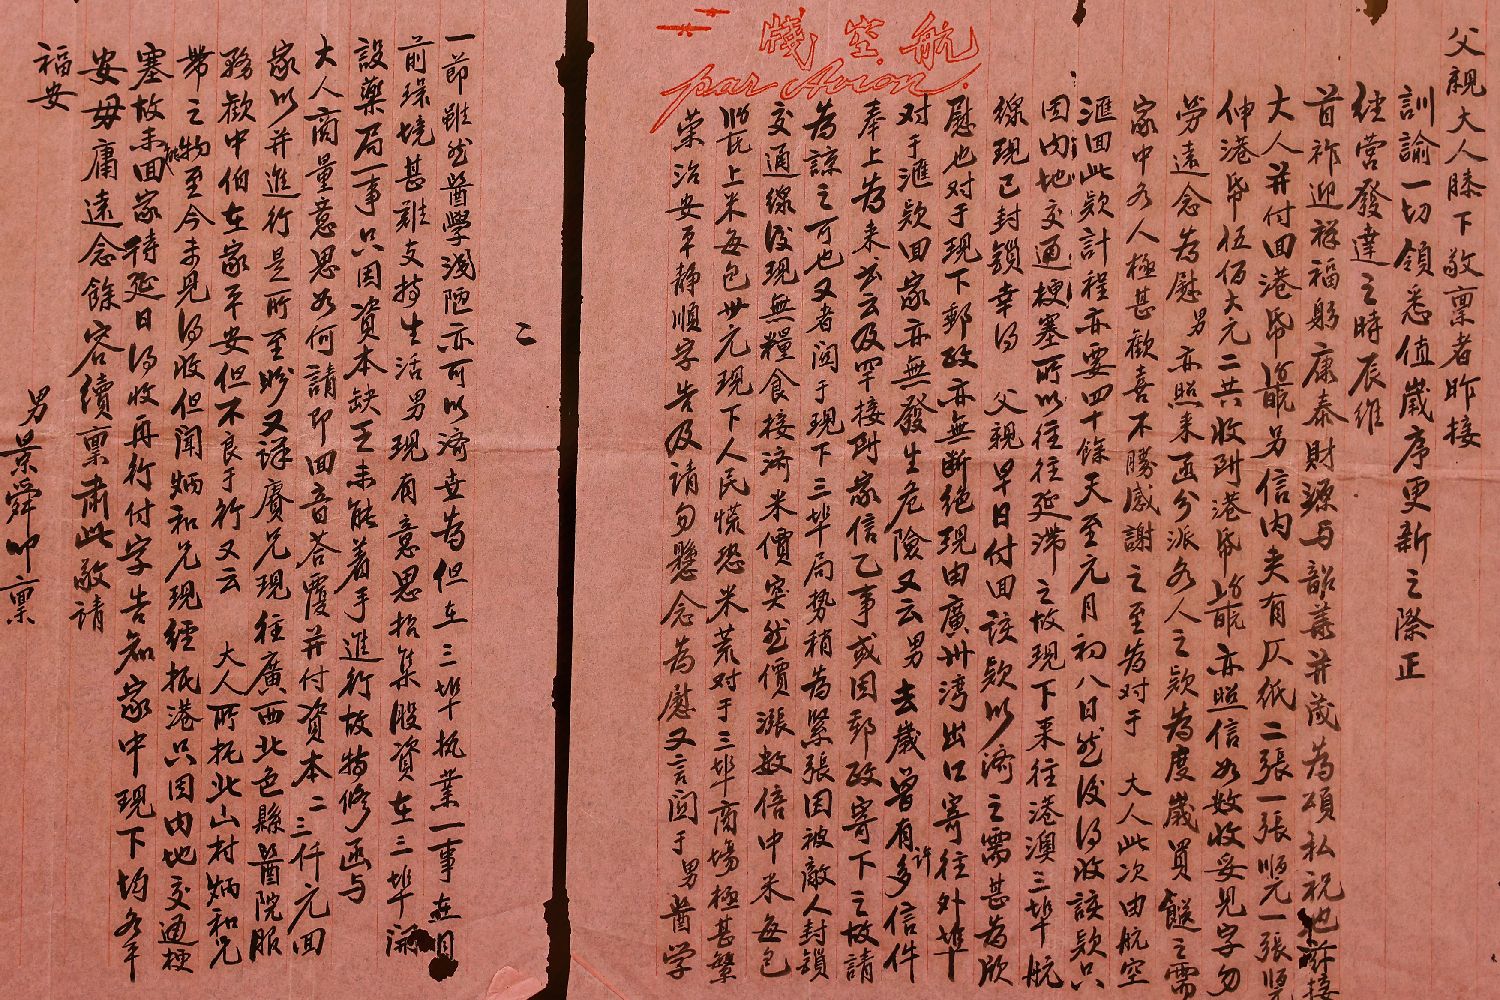 航空牋
par Avion.
父親大人膝下敬禀者昨接
訓諭一切領悉值歲序更新之際正
經營發達之時辰維
首祚迎祥福躬康泰財源与韶華并茂為頌私祝也前接
大人并付回港帋 另信內夹有仄紙二張一張順元一張
伸港帋伍佰大元二共收附港帋 亦照信如數收妥見字勿
勞遠念為慰男亦照来函分派各人之欵為度歲買餸之需
家中各人極甚歡喜不勝感謝之至為对于 大人此次由航空
滙回此欵計程亦要四十餘天至元月初八日然後得收該欵只
因內地交通梗塞所以往往延滯之故現下来往港澳三埠航
線現已封鎖幸得 父親早日付回該欵以濟之需甚為欣
慰也对于現下郵政亦無断絶現由廣州湾出口寄往外埠
对于滙欵回家亦無發生危險又云男去歲曾有許多信件
奉上為未 云及罕接附家信乙事或因郵政寄下之故請
為諒之可也又者関于現下三埠局勢稍為緊張因被敵人封鎖
交通線後現無糧食接濟米價突然價漲数倍中米每包
 上米每包卅元現下人民慌恐米荒对于三埠商場極甚繁
荣治安平静順字告及請勿懸念為慰又言関于男醫学
二
一節雖然醫學淺陋亦可以濟世為但在三埠执業一事在目
前環境甚難支持生活男現有意思招集股資在三埠開
設藥局一事只因資本缺乏未能着手進行故特修函与
大人商量意思如何請即回音荅覆并付資本二三仟元回
家以并進行是所至盼又詳賡兄現往廣西北色縣醫院服
務歡中伯在家平安但不良于行又云 大人所托北山村炳和兄
帶之物至今未見得收但闻炳和兄現經抵港只因內地交通梗
塞故未 回家待延日得收再行付字告知家中現下均各平
安毋庸遠念餘容續禀肃此敬請
福安
男景舜叩禀